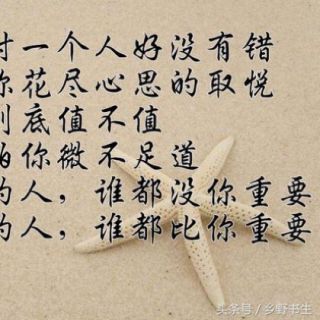 对一个人好没有错
你花尽心思的取悦
到底值不值
怕你微不足道
的人，谁都没你重要
的人，谁都比你重要
头条号/乡野书生